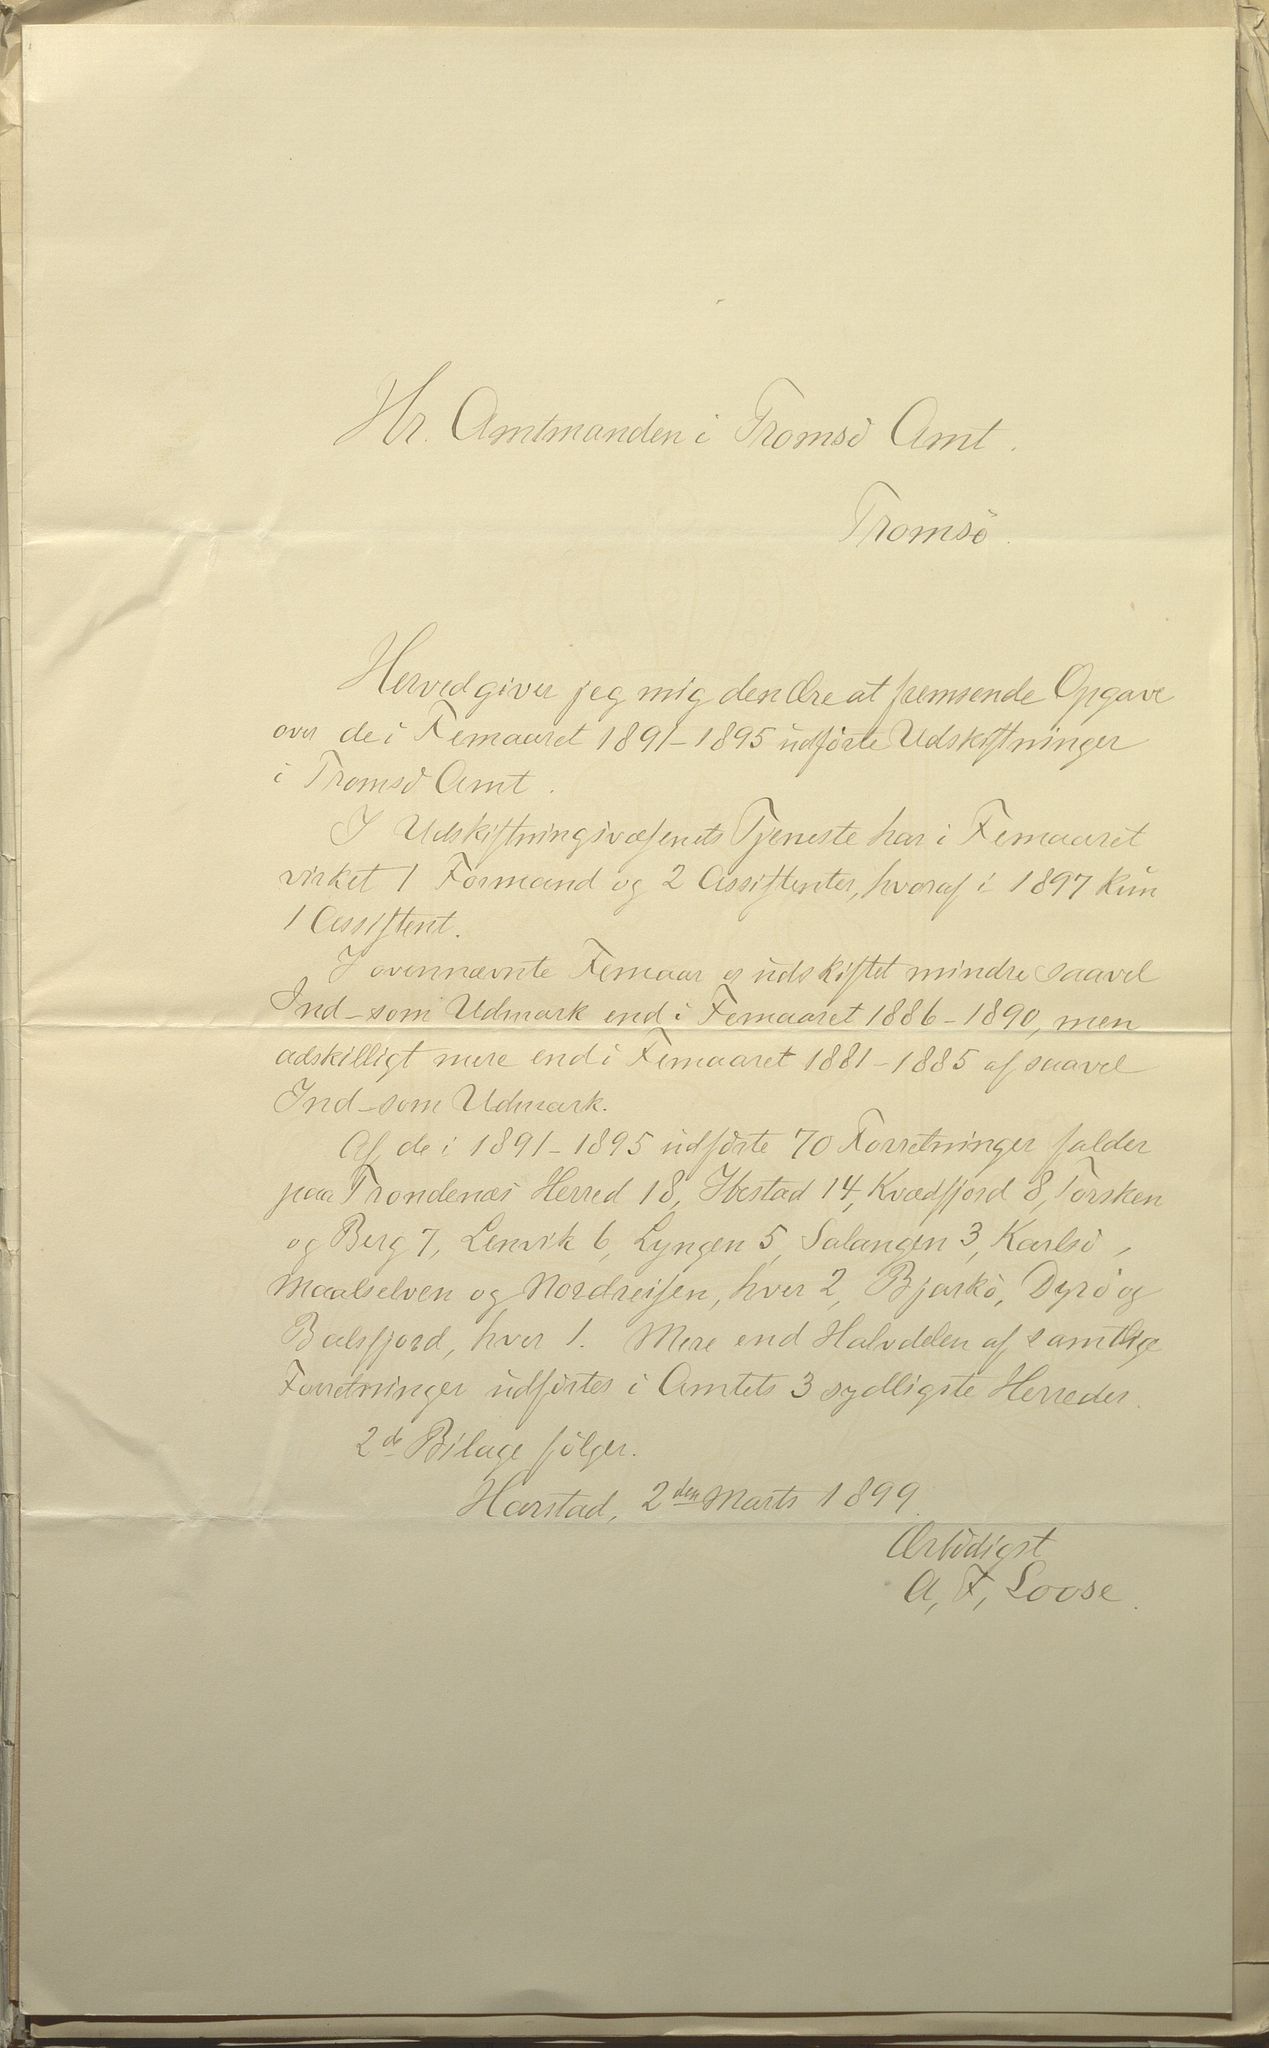 Hr. Amtmanden i Tromsö Amt.
Tromsö.
Herved giver jeg mig den Ære at fremsende Opgave
over de i Femaaret 1891-1895 udförte Udskiftninger
i Tromsö Amt.
I Udskiftningsvæsenets Tjeneste har i Femaaret
virket 1 Formand og 2 Assistenter, hvoraf i 1897 kun
1 Assistent.
I ovennævnte Femaar er udskiftet mindre saavel
Ind- som Udmark end i Femaaret 1886-1890, men
adskilligt mere end i Femaaret 1881-1885 af saavel
Ind- som Udmark.
Af de i 1891-1895 udförte 70 Forretninger falder
paa Trondenæs Herred 18, Ibestad 14, Kvædfjord 8, Torsken
og Berg 7, Lenvik 6, Lyngen 5, Salangen 3, Karlsö,
Maalselven og Nordreisen, hver 2, Bjarkö, Dyrö og
Balsfjord, hver 1. Mere end Halvdelen af samtlige
Forretninger udförtes i Amtets 3 sydligste Herreder.
2de Bilage fölger.
Harstad, 2den Marts 1899.
Ærbödigst
A, F, Loose.